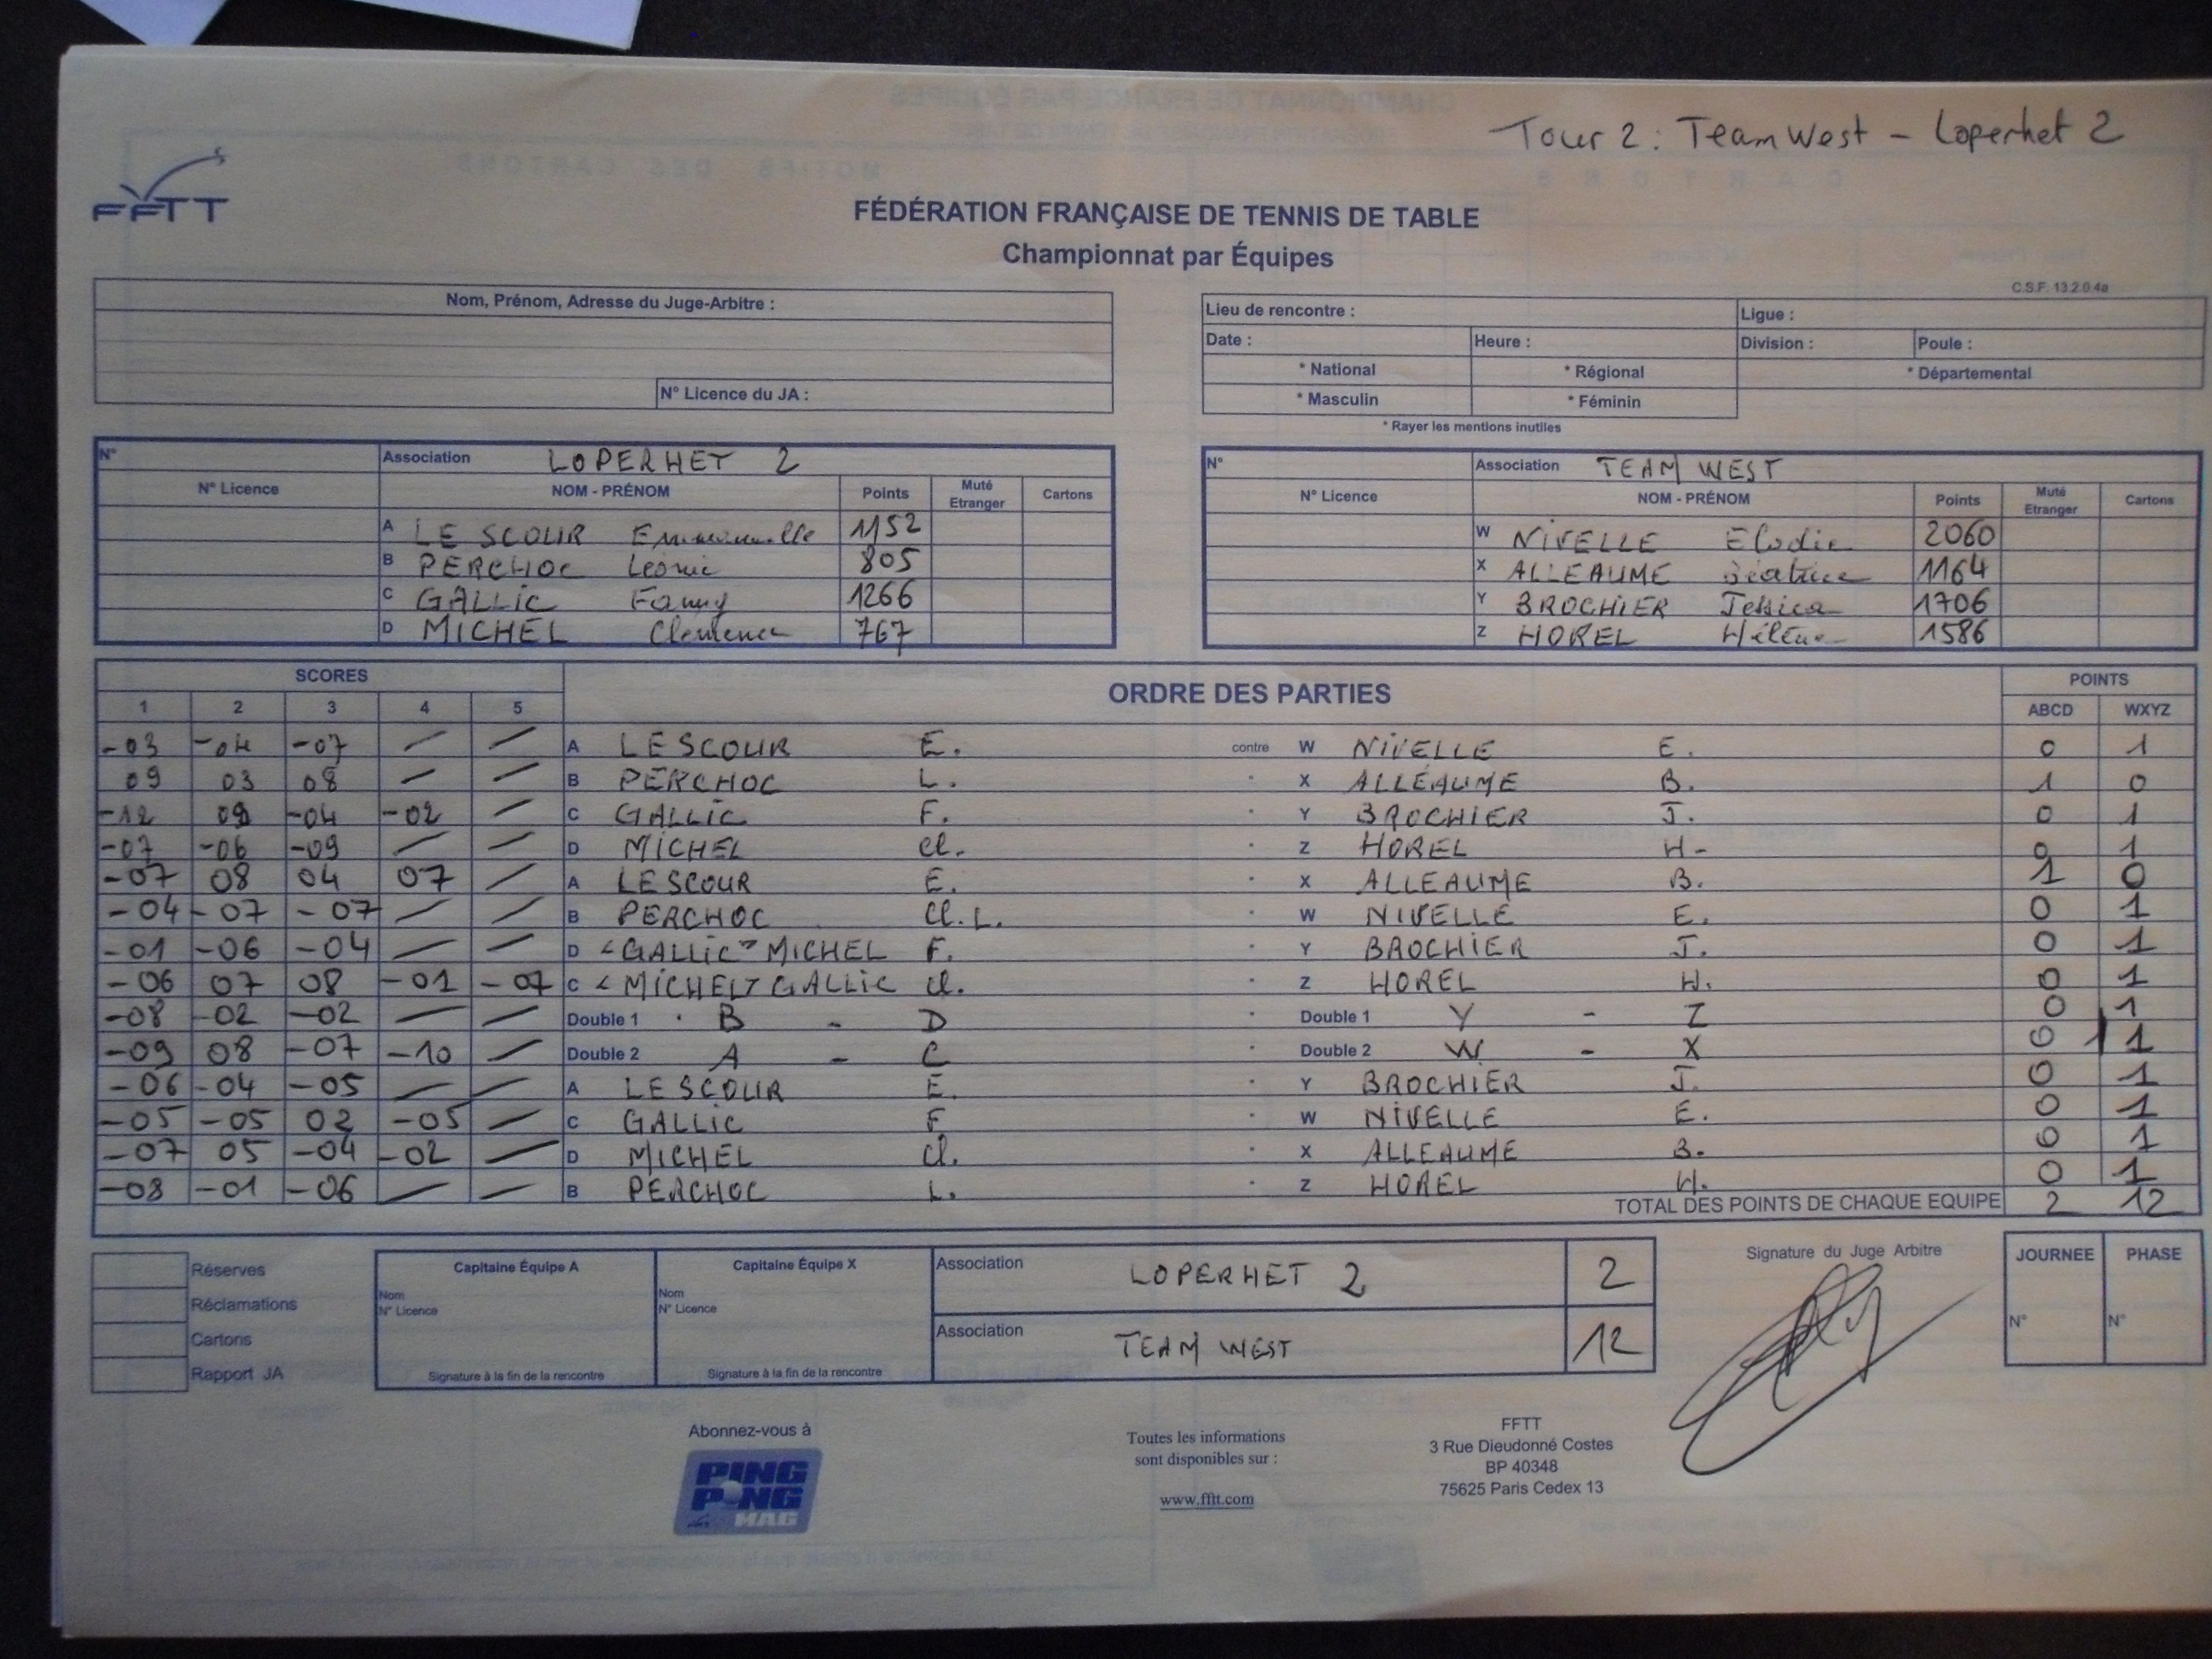 Tour 2 : Team West - Loperhet 2
FFTT
FÉDÉRATION FRANÇAISE DE TENNIS DE TABLE
Championnat par Équipes
C.S.F. 13.2.0.4a
Nom, Prénom, Adresse du Juge-Arbitre :
N° Licence du JA :
Lieu de rencontre : Ligue :
Date : Heure : Division : Poule :
* National * Régional * Départemental
* Masculin * Féminin
* Rayer les mentions inutiles
N° Association LOPERHET 2
N° Licence NOM - PRÉNOM Points Muté Etranger Cartons
A LE SCOUR Emmanuelle 1152
B PERCHOC Léonie 805
C GALLIC Fanny 1266
D MICHEL Clemence 767
N° Association TEAM WEST
N° Licence NOM - PRÉNOM Points Muté Etranger Cartons
W NIVELLE Elodie 2060
X ALLEAUME Béatrice 1164
Y BROCHIER Jessica 1706
Z HOREL Hélène 1586
SCORES ORDRE DES PARTIES POINTS
1 2 3 4 5 ABCD WXYZ
-03 -04 -07 / / A LE SCOUR E. contre W NIVELLE E. 0 1
09 03 08 / / B PERCHOC L. " X ALLÉAUME B. 1 0
-12 09 -04 -02 / C GALLIC F. " Y BROCHIER J. 0 1
-07 -06 -09 / / D MICHEL Cl. " Z HOREL H- 0 1
-07 08 04 07 / A LE SCOUR E. " X ALLEAUME B. 1 0
-04 -07 -07 / / B PERCHOC Cl. L. " W NIVELLE E. 0 1
-01 -06 -04 / / D <GALLIC> MICHEL F. " Y BROCHIER J. 0 1
-06 07 08 -01 -07 C <MICHEL> GALLIC Cl. " Z HOREL H. 0 1
-08 -02 -02 / / Double 1 B - D " Double 1 Y - Z 0 1
-09 08 -07 -10 / Double 2 A - C " Double 2 W - X 0 1
-06 -04 -05 / / A LE SCOUR E. " Y BROCHIER J. 0 1
-05 -05 02 -05 / C GALLIC F " W NIVELLE E. 0 1
-07 05 -04 -02 / D MICHEL Cl. " X ALLEAUME B. 0 1
-08 -01 -06 / / B PERCHOC L. " Z HOREL H. 0 1
TOTAL DES POINTS DE CHAQUE EQUIPE 2 12
Réserves
Réclamations
Cartons
Rapport JA
Capitaine Équipe A
Nom
N° Licence
Signature à la fin de la rencontre
Capitaine Équipe X
Nom
N° Licence
Signature à la fin de la rencontre
Association LOPERHET 2 2
Association TEAM WEST 12
Signature du Juge Arbitre
JOURNEE PHASE
N° N°
Abonnez-vous à
PING
PONG
MAG
Toutes les informations
sont disponibles sur :
www.fftt.com
FFTT
3 Rue Dieudonné Costes
BP 40348
75625 Paris Cedex 13